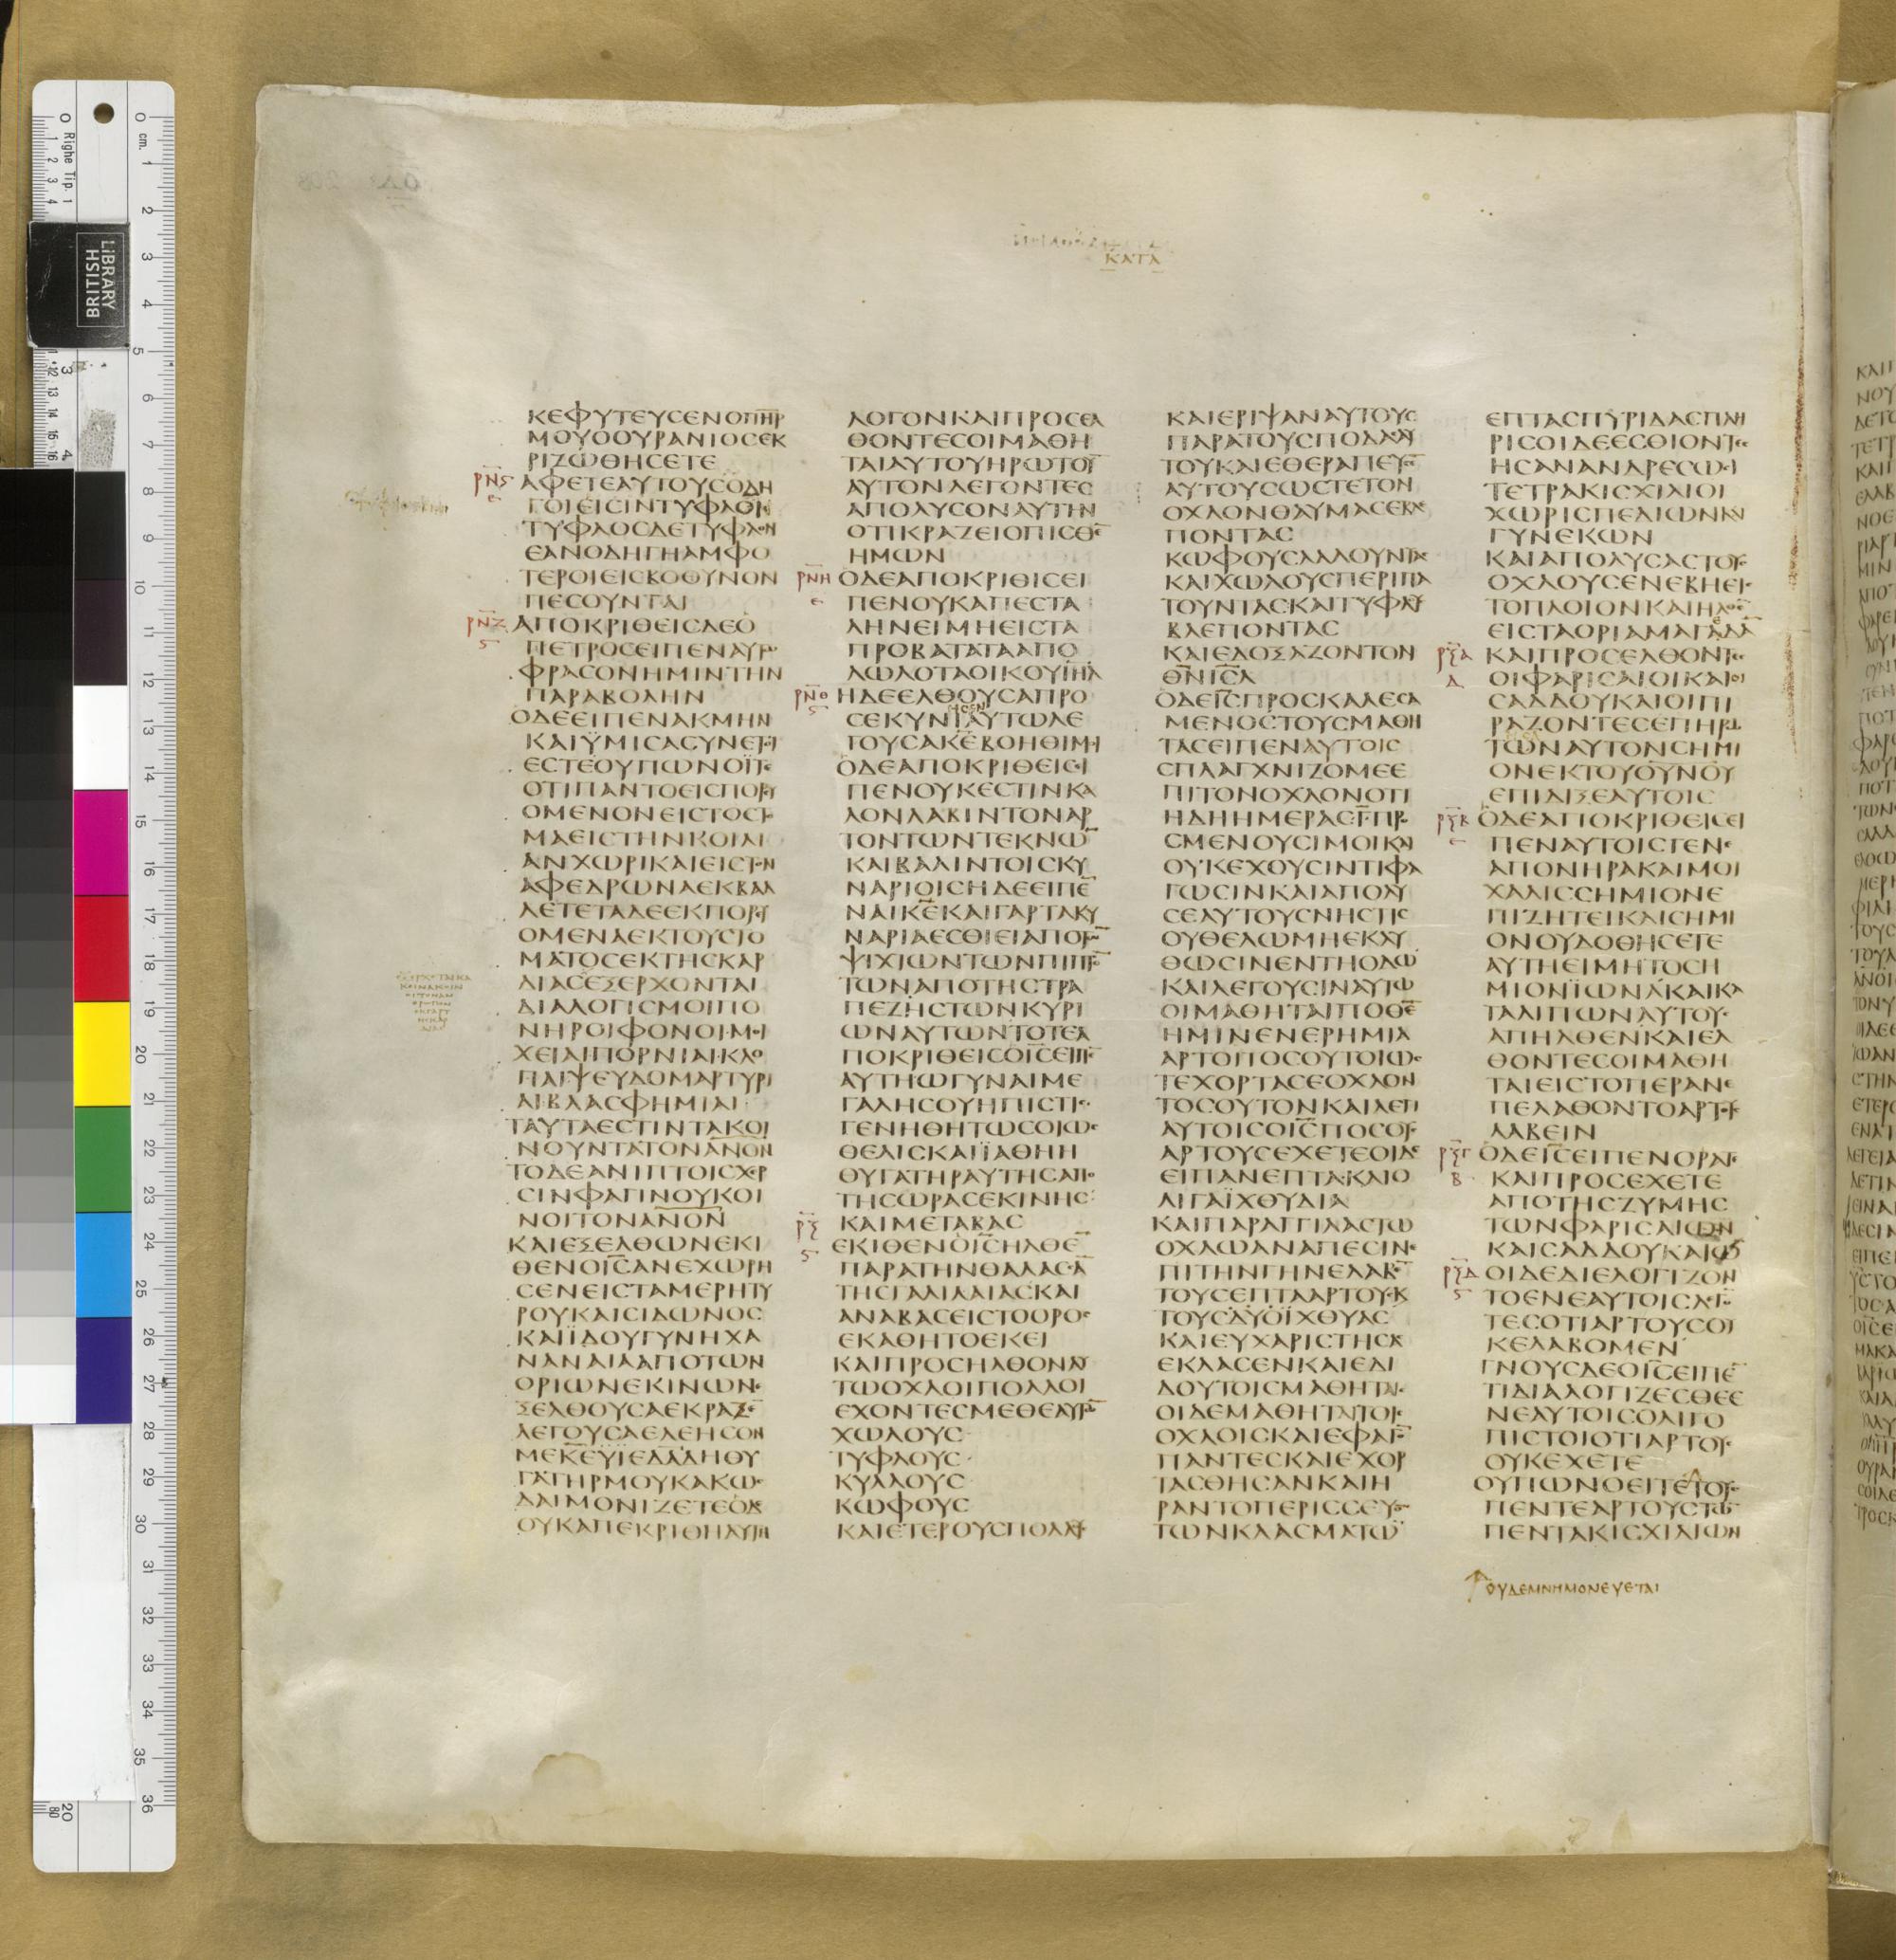 ΚΑΤΑ
ΚΕΦΥΤΕΥCΕΝΟΠΗΡ
ΜΟΥΟΟΥΡΑΝΙΟCΕΚ
ΡΙΖΩΘΗCΕΤΕ
ΑΦΕΤΕΑΥΤΟΥCΟΔΗ
ΓΟΙΕΙCΙΝΤΥΦΛΟΙ
ΤΥΦΛΟCΔΕΤΥΦΛΟΝ
ΕΑΝΟΔΗΓΗΑΜΦΟ
ΤΕΡΟΙΕΙCΒΟΘΥΝΟΝ
ΠΕCΟΥΝΤΑΙ
ΑΠΟΚΡΙΘΕΙCΔΕΟ
ΠΕΤΡΟCΕΙΠΕΝΑΥΤΩ
ΦΡΑCΟΝΗΜΙΝΤΗΝ
ΠΑΡΑΒΟΛΗΝ
ΟΔΕΕΙΠΕΝΑΚΜΗΝ
ΚΑΙΫΜΙCΑCΥΝΕΤΟΙ
ΕCΤΕΟΥΠΩΝΟΪΤΕ
ΟΤΙΠΑΝΤΟΕΙCΠΟΡΥ
ΟΜΕΝΟΝΕΙCΤΟCΤΟ
ΜΑΕΙCΤΗΝΚΟΙΛΙ
ΑΝΧΩΡΙΚΑΙΕΙCΤΟΝ
ΑΦΕΔΡΩΝΑΕΚΒΑΛ
ΛΕΤΕΤΑΔΕΕΚΠΟΡΥ
ΟΜΕΝΑΕΚΤΟΥCΤΟ
ΜΑΤΟCΕΚΤΗCΚΑΡ
ΔΙΑCΕΞΕΡΧΟΝΤΑΙ
ΔΙΑΛΟΓΙCΜΟΙΠΟ
ΝΗΡΟΙΦΟΝΟΙΜΟΙ
ΧΕΙΑΙΠΟΡΝΙΑΙΚΛΟ
ΠΑΙΨΕΥΔΟΜΑΡΤΥΡΙ
ΑΙΒΛΑCΦΗΜΙΑΙ
ΤΑΥΤΑΕCΤΙΝΤΑΚΟΙ
ΝΟΥΝΤΑΤΟΝΑΝΟΝ
ΤΟΔΕΑΝΙΠΤΟΙCΧΕΡ
CΙΝΦΑΓΙΝΟΥΚΟΙ
ΝΟΙΤΟΝΑΝΟΝ
ΚΑΙΕΞΕΛΘΩΝΕΚΙ
ΘΕΝΟΙCΑΝΕΧΩΡΗ
CΕΝΕΙCΤΑΜΕΡΗΤΥ
ΡΟΥΚΑΙCΙΔΩΝΟC
ΚΑΙΪΔΟΥΓΥΝΗΧΑ
ΝΑΝΑΙΑΑΠΟΤΩΝ
ΟΡΙΩΝΕΚΙΝΩΝΕ
ΞΕΛΘΟΥCΑΕΚΡΑΖΕ
ΛΕΓΟΥCΑΕΛΕΗCΟΝ
ΜΕΚΕΥΙΕΔΑΔΗΘΥ
ΓΑΤΗΡΜΟΥΚΑΚΩC
ΔΑΙΜΟΝΙΖΕΤΕΟΔΕ
ΟΥΚΑΠΕΚΡΙΘΗΑΥΤΗ
ΛΟΓΟΝΚΑΙΠΡΟCΕΛ
ΘΟΝΤΕCΟΙΜΑΘΗ
ΤΑΙΑΥΤΟΥΗΡΩΤΟΥ
ΑΥΤΟΝΛΕΓΟΝΤΕC
ΑΠΟΛΥCΟΝΑΥΤΗΝ
ΟΤΙΚΡΑΖΕΙΟΠΙCΘΕ
ΗΜΩΝ
ΟΔΕΑΠΟΚΡΙΘΙCΕΙ
ΠΕΝΟΥΚΑΠΕCΤΑ
ΛΗΝΕΙΜΗΕΙCΤΑ
ΠΡΟΒΑΤΑΤΑΑΠΟ
ΛΩΛΟΤΑΟΙΚΟΥΙΗΛ
ΗΔΕΕΛΘΟΥCΑΠΡΟ
CΕΚΥΝΙΑΥΤΩΛΕ
ΓΟΥCΑΚΕΒΟΗΘΙΜΟΙ
ΟΔΕΑΠΟΚΡΙΘΕΙCΕΙ
ΠΕΝΟΥΚΕCΤΙΝΚΑ
ΛΟΝΛΑΒΙΝΤΟΝΑΡ
ΤΟΝΤΩΝΤΕΚΝΩ
ΚΑΙΒΑΛΙΝΤΟΙCΚΥ
ΝΑΡΙΟΙCΗΔΕΕΙΠΕ
ΝΑΙΚΕΚΑΙΓΑΡΤΑΚΥ
ΝΑΡΙΑΕCΘΙΕΙΑΠΟΤΩ
ΨΙΧΙΩΝΤΩΝΠΙΠΤΟ
ΤΩΝΑΠΟΤΗCΤΡΑ
ΠΕΖΗCΤΩΝΚΥΡΙ
ΩΝΑΥΤΩΝΤΟΤΕΑ
ΠΟΚΡΙΘΕΙCΟΙCΕΙΠΕ
ΑΥΤΗΩΓΥΝΑΙΜΕ
ΓΑΛΗCΟΥΗΠΙCΤΙC
ΓΕΝΗΘΗΤΩCΟΙΩC
ΘΕΛΙCΚΑΙΪΑΘΗΗ
ΘΥΓΑΤΗΡΑΥΤΗCΑΠΟ
ΤΗCΩΡΑCΕΚΙΝΗC
ΚΑΙΜΕΤΑΒΑC
ΕΚΙΘΕΝΟΙCΗΛΘΕ
ΠΑΡΑΤΗΝΘΑΛΑCCΑ
ΤΗCΓΑΛΙΛΑΙΑCΚΑΙ
ΑΝΑΒΑCΕΙCΤΟΟΡΟC
ΕΚΑΘΗΤΟΕΚΕΙ
ΚΑΙΠΡΟCΗΛΘΟΝΑΥ
ΤΩΟΧΛΟΙΠΟΛΛΟΙ
ΕΧΟΝΤΕCΜΕΘΕΑΥΤΩ
ΧΩΛΟΥC
ΤΥΦΛΟΥC
ΚΥΛΛΟΥC
ΚΩΦΟΥC
ΚΑΙΕΤΕΡΟΥCΠΟΛΛΟΥ
ΚΑΙΕΡΙΨΑΝΑΥΤΟΥC
ΠΑΡΑΤΟΥCΠΟΔΑΑΥ
ΤΟΥΚΑΙΕΘΕΡΑΠΕΥCΕ
ΑΥΤΟΥCΩCΤΕΤΟΝ
ΟΧΛΟΝΘΑΥΜΑCΕΒΛΕ
ΠΟΝΤΑC
ΚΩΦΟΥCΛΑΛΟΥΝΤΑC
ΚΑΙΧΩΛΟΥCΠΕΡΙΠΑ
ΤΟΥΝΤΑCΚΑΙΤΥΦΛΟΥ
ΒΛΕΠΟΝΤΑC
ΚΑΙΕΔΟΞΑΖΟΝΤΟΝ
ΘΝΙCΛ
ΟΔΕΙCΠΡΟCΚΑΛΕCΑ
ΜΕΝΟCΤΟΥCΜΑΘΗ
ΤΑCΕΙΠΕΝΑΥΤΟΙC
CΠΛΑΓΧΝΙΖΟΜΕΕ
ΠΙΤΟΝΟΧΛΟΝΟΤΙ
ΗΔΗΗΜΕΡΑCΓΠΡΟ
CΜΕΝΟΥCΙΜΟΙΚΑΙ
ΟΥΚΕΧΟΥCΙΝΤΙΦΑ
ΓΩCΙΝΚΑΙΑΠΟΛΥ
CΕΑΥΤΟΥCΝΗCΤΙC
ΟΥΘΕΛΩΜΗΕΚΛΥ
ΘΩCΙΝΕΝΤΗΟΔΩ
ΚΑΙΛΕΓΟΥCΙΝΑΥΤΩ
ΟΙΜΑΘΗΤΑΙΠΟΘΕ
ΗΜΙΝΕΝΕΡΗΜΙΑ
ΑΡΤΟΙΤΟCΟΥΤΟΙΩC
ΤΕΧΟΡΤΑCΕΟΧΛΟΝ
ΤΟCΟΥΤΟΝΚΑΙΛΕΓΙ
ΑΥΤΟΙCΟΙCΠΟCΟΥC
ΑΡΤΟΥCΕΧΕΤΕΟΙΔΕ
ΕΙΠΑΝΕΠΤΑΚΑΙΟ
ΛΙΓΑΪΧΘΥΔΙΑ
ΚΑΙΠΑΡΑΓΓΙΛΑCΤΩ
ΟΧΛΩΑΝΑΠΕCΙΝΕ
ΠΙΤΗΝΓΗΝΕΛΑΒΕ
ΤΟΥCΕΠΤΑΑΡΤΟΥCΚ
ΤΟΥCΔΥΟΪΧΘΥΑC
ΚΑΙΕΥΧΑΡΙCΤΗCΑC
ΕΚΛΑCΕΝΚΑΙΕΔΙ
ΔΟΥΤΟΙCΜΑΘΗΤΑΙC
ΟΙΔΕΜΑΘΗΤΑΙΤΟΙC
ΟΧΛΟΙCΚΑΙΕΦΑΓΟ
ΠΑΝΤΕCΚΑΙΕΧΟΡ
ΤΑCΘΗCΑΝΚΑΙΗ
ΡΑΝΤΟΠΕΡΙCCΕΥΟ
ΤΩΝΚΛΑCΜΑΤΩ
ΕΠΤΑCΠΥΡΙΔΑCΠΛΗ
ΡΙCΟΙΔΕΕCΘΙΟΝΤΕC
ΗCΑΝΑΝΔΡΕCΩCΙ
ΤΕΤΡΑΚΙCΧΙΛΙΟΙ
ΧΩΡΙCΠΕΔΙΩΝΚΑΙ
ΓΥΝΕΚΩΝ
ΚΑΙΑΠΟΛΥCΑCΤΟΥC
ΟΧΛΟΥCΕΝΕΒΗΕΙC
ΤΟΠΛΟΙΟΝΚΑΙΗΛΘΕ
ΕΙCΤΑΟΡΙΑΜΑΓΑΔΑ
ΚΑΙΠΡΟCΕΛΘΟΝΤΕC
ΟΙΦΑΡΙCΑΙΟΙΚΑΙΟΙ
CΑΔΔΟΥΚΑΙΟΙΠΙ
ΡΑΖΟΝΤΕCΕΠΗΡΩ
ΤΩΝΑΥΤΟΝCΗΜΙ
ΟΝΕΚΤΟΥΟΥΝΟΥ
ΕΠΙΔΙΞΕΑΥΤΟΙC
ΟΔΕΑΠΟΚΡΙΘΕΙCΕΙ
ΠΕΝΑΥΤΟΙCΓΕΝΕ
ΑΠΟΝΗΡΑΚΑΙΜΟΙ
ΧΑΛΙCCΗΜΙΟΝΕ
ΠΙΖΗΤΕΙΚΑΙCΗΜΙ
ΟΝΟΥΔΟΘΗCΕΤΕ
ΑΥΤΗΕΙΜΗΤΟCΗ
ΜΙΟΝΪΩΝΑΚΑΙΚΑ
ΤΑΛΙΠΩΝΑΥΤΟΥC
ΑΠΗΛΘΕΝΚΑΙΕΛ
ΘΟΝΤΕCΟΙΜΑΘΗ
ΤΑΙΕΙCΤΟΠΕΡΑΝΕ
ΠΕΛΑΘΟΝΤΟΑΡΤΟΥC
ΛΑΒΕΙΝ
ΟΔΕΙCΕΙΠΕΝΟΡΑΤΕ
ΚΑΙΠΡΟCΕΧΕΤΕ
ΑΠΟΤΗCΖΥΜΗC
ΤΩΝΦΑΡΙCΑΙΩΝ
ΚΑΙCΑΔΔΟΥΚΑΙΩ
ΟΙΔΕΔΙΕΛΟΓΙΖΟΝ
ΤΟΕΝΕΑΥΤΟΙCΛΕΓΟ
ΤΕCΟΤΙΑΡΤΟΥCΟΥ
ΚΕΛΑΒΟΜΕΝ
ΓΝΟΥCΔΕΟΙCΕΙΠΕ
ΤΙΔΙΑΛΟΓΙΖΕCΘΕΕ
ΝΕΑΥΤΟΙCΟΛΙΓΟ
ΠΙCΤΟΙΟΤΙΑΡΤΟΥC
ΟΥΚΕΧΕΤΕ
ΟΥΠΩΝΟΕΙΤΕΤΟΥC
ΠΕΝΤΕΑΡΤΟΥCΤΩ
ΠΕΝΤΑΚΙCΧΙΛΙΩΝ
ΟΥΔΕΜΝΗΜΟΝΕΥΕΤΑΙ